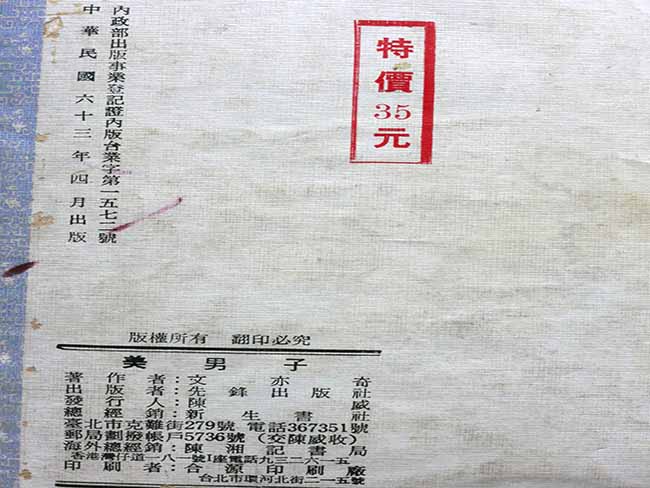 特價
35
元
內政部出版事業登記證內版台業字第一五七二號
中華民國六十三年四月出版
版權所有　翻印必究
美男子
著作者：文亦奇
出版者：先鋒出版社
發行人：陳威
總經銷：新生書社
臺北市克難街279號 電話367351號
郵局劃撥帳戶5736號（交陳威收）
海外總經銷：陳湘記書局
香港灣仔道一八一號1座電話九三二六一五
印刷者：合源印刷廠
台北市環河北街二一五號